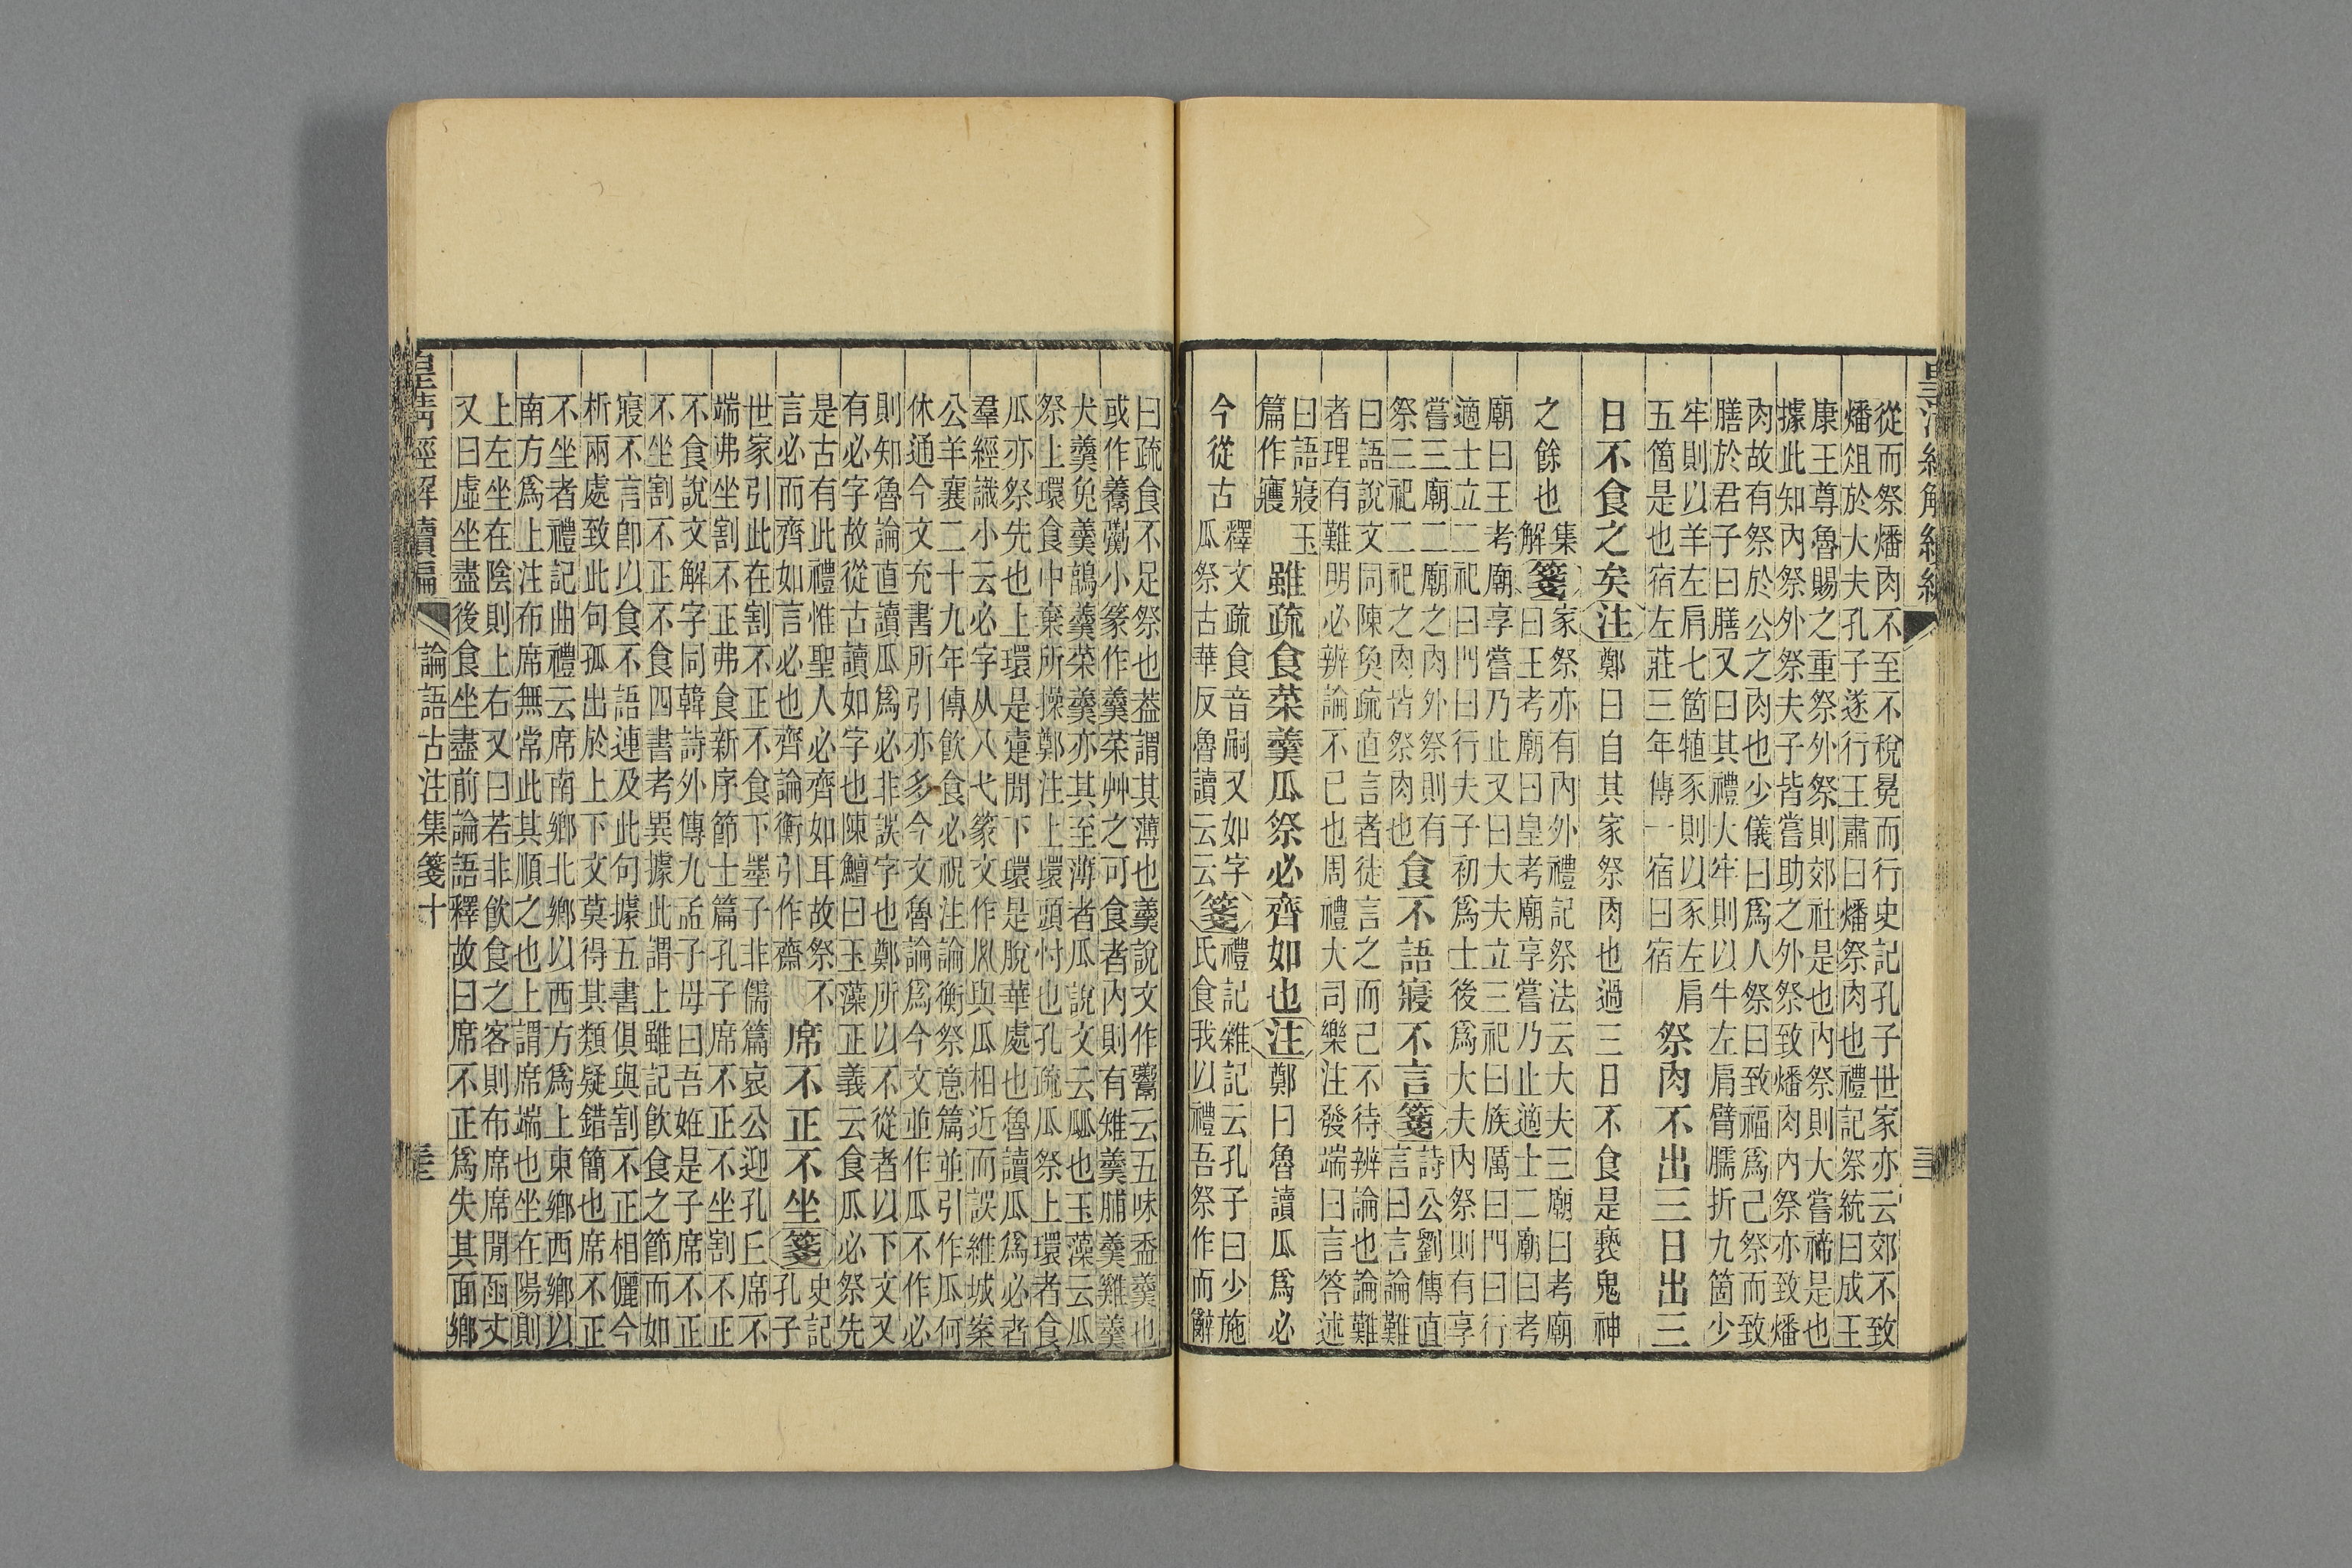 從而祭燔肉不至不稅冕而行史記孔子世家亦云郊不致
燔俎於大夫孔子遂行王肅曰燔祭肉也禮記祭統曰成王
康王尊魯賜之重祭外祭則郊社是也內祭則大嘗禘是也
據此知內祭外祭夫子皆嘗助之外祭致燔肉內祭亦致燔
肉故有祭於公之肉也少儀曰爲人祭曰致福爲己祭而致
膳於君子曰膳又曰其禮大牢則以牛左肩臂臑折九箇少
牢則以羊左肩七箇犆豕則以豕左肩
五箇是也宿左莊三年傳一宿曰宿
祭肉不出三日出三
日不食之矣注鄭曰自其家祭肉也過三日不食是褻鬼神
之餘也集解箋
家祭亦有內外禮記祭法云大夫三廟曰考廟
曰王考廟曰皇考廟享嘗乃止適士二廟曰考
廟曰王考廟享嘗乃止又曰大夫立三祀曰族厲曰門曰行
適士立二祀曰門曰行夫子初爲士後爲大夫內祭則有享
嘗三廟二廟之肉外祭則有
祭三祀二祀之肉皆祭肉也
食不語寢不言箋
詩公劉傳直
言曰言論難
曰語說文同陳奐疏直言者徒言之而己不待辨論也論難
者理有難明必辨論不已也周禮大司樂注發端曰言答述
曰語寢玉
篇作㝲
雖疏食菜羹瓜祭必齊如也注鄭曰魯讀瓜爲必
今從古釋文疏食音嗣又如字
瓜祭古華反魯讀云云
箋
禮記雜記云孔子曰少施
氏食我以禮吾祭作而辭
曰疏食不足祭也葢謂其薄也羹說文作䰞云五味盉羹也
或作𩱧小篆作羹菜艸之可食者內則有雉羹脯羹雞羹
犬羹兔羹鶉羹菜羹亦其至薄者瓜說文云㼌也玉藻云瓜
祭上環食中棄所操鄭注上環頭忖也孔疏瓜祭上環者食
瓜亦祭先也上環是疐閒下環是脫華處也魯讀瓜爲必者
羣經識小云必字从八弋篆文作與瓜相近而誤維城案
公羊襄二十九年傳飲食必祝注論衡祭意篇並引作瓜何
休通今文充書所引亦多今文魯論爲今文並作瓜不作必
則知魯論直讀瓜爲必非誤字也鄭所以不從者以下文又
有必字故從古讀如字也陳鱣曰玉藻正義云食瓜必祭先
是古有此禮惟聖人必齊如耳故祭不
言必而齊如言必也齊論衡引作齋
席不正不坐箋
史記
孔子
世家引此在割不正不食下墨子非儒篇哀公迎孔丘席不
端弗坐割不正弗食新序節士篇孔子席不正不坐割不正
不食說文解字同韓詩外傳九孟子母曰吾姙是子席不正
不坐割不正不食四書考異據此謂上雖記飲食之節而如
寢不言卽以食不語連及此句據五書俱與割不正相儷今
析兩處致此句孤出於上下文莫得其類疑錯簡也席不正
不坐者禮記曲禮云席南鄉北鄉以西方爲上東鄉西鄉以
南方爲上注布席無常此其順之也上謂席端也坐在陽則
上左坐在陰則上右又曰若非飲食之客則布席席閒函丈
又曰虛坐盡後食坐盡前論語釋故曰席不正爲失其面鄉
皇淸經解續編
論語古注集箋十